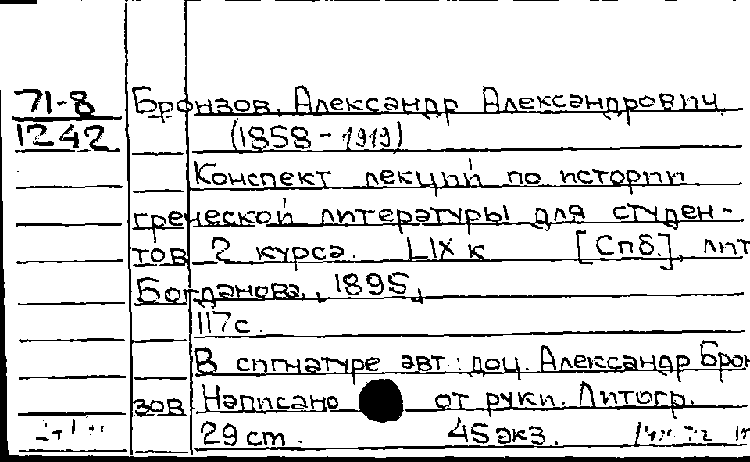 71-8 Бронзов, Александр Александрович
1242 (1858-1919)
Конспект лекций по истории
греческой литературы для студен-
тов 2 курса. LIX к [Спб.], лит
Богданова, 1895,
117с.
В сигнатуре авт: доц. Александр Брон
зов Написано от руки. Литогр.
29 cm. 45 экз.